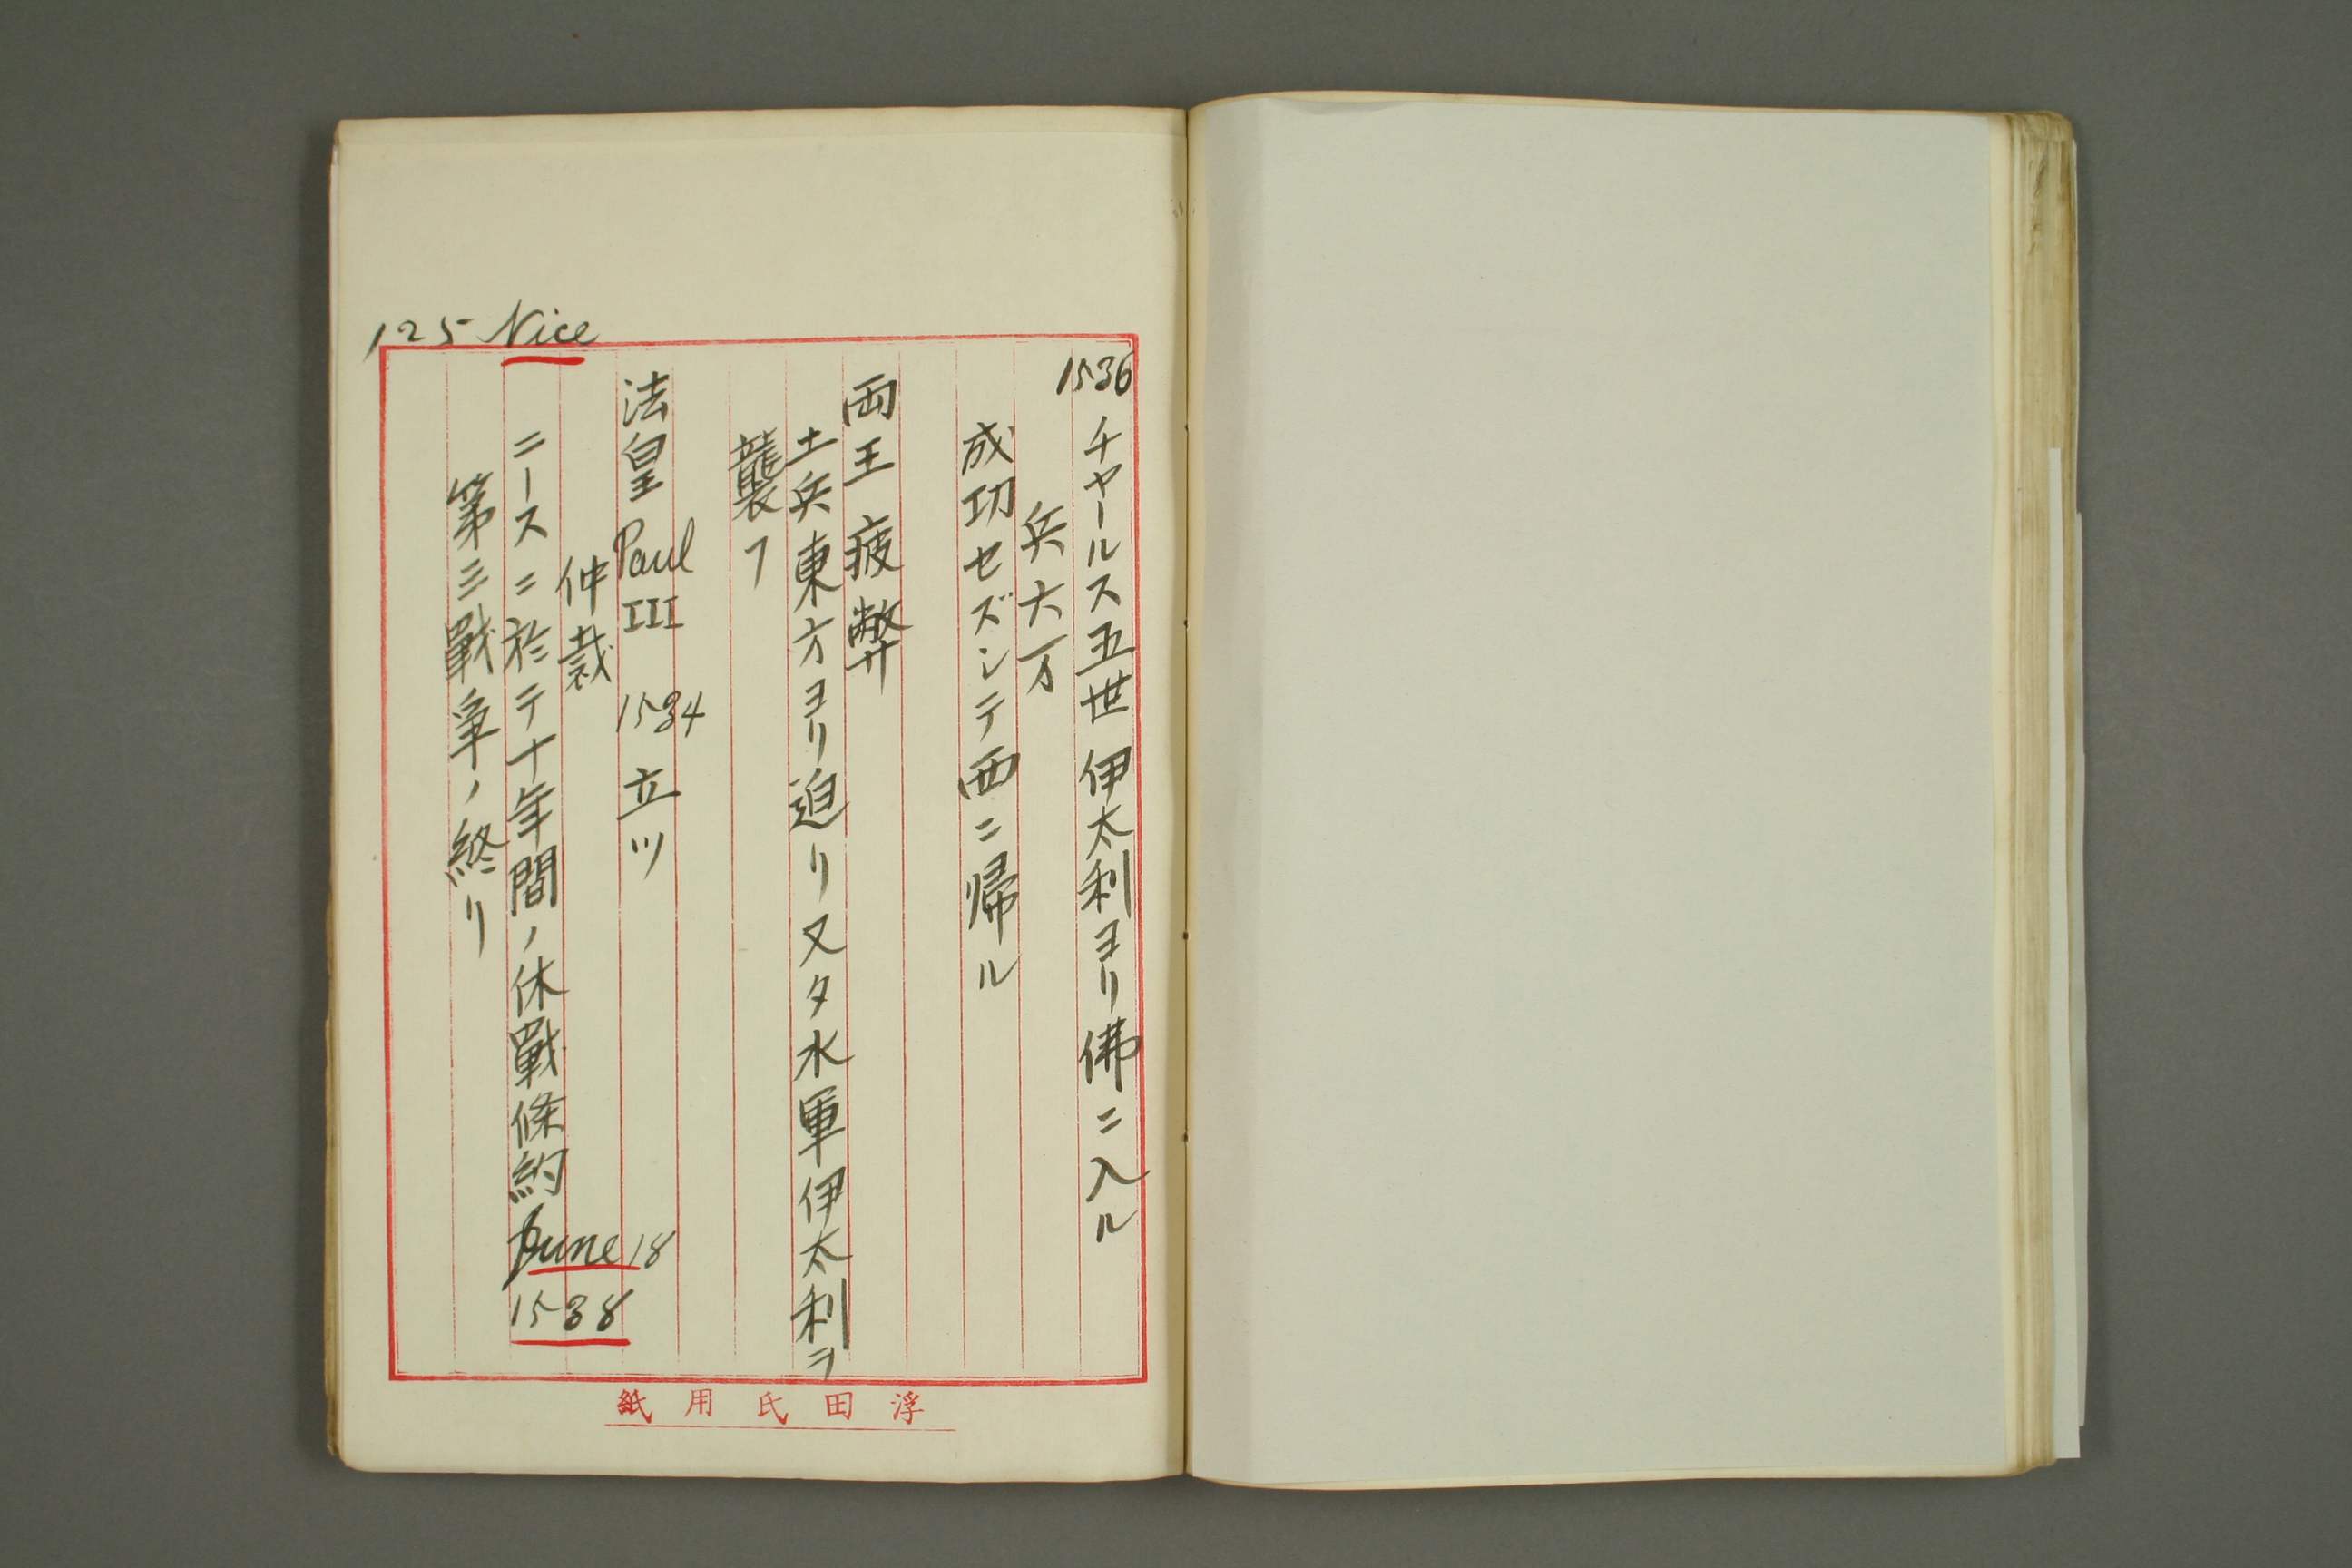 1536
チャールス五世 伊太利ヨリ佛ニ入ル
兵六万
成功セズシテ西ニ帰ル
両王 疲弊
土兵東方ヨリ迫リ又タ水軍伊太利ヲ
襲フ
法皇 Paul III 1534 立ツ
仲裁
125 Nice
ニースニ於テ十年間ノ休戰條約 June 18
1538
第三戰争ノ終リ
浮田氏用紙